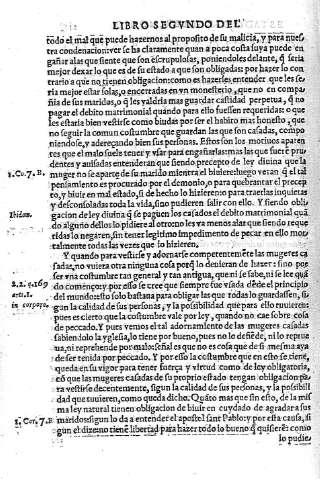 LIBRO SEGVNDO DEL
todo el mal que puede hazernos al proposito de su malicia, y para nues
tra condenacion: ver se ha claramente quan a poca costa suya puede en
gañar alas que siente que son escrupulosas, poniendoles delante, q̃ seria
mejor dexar lo que es de su estado a que son obligadas: por hazer lo con
trario a que no tienen obligacion: como es hazerles entender que les se
ria mejor estar solas, o encerradas en vn monesterio, que no en compa
ñia de sus maridos, o q̃ les valdria mas guardar castidad perpetua, q̃ no
pagar el debito matrimonial quando para ello fuessen requeridas: o que
les estaria bien vestirse como biudas por ser el habito mas honesto, que
no seguir la comun costumbre que guardan las que son casadas, compo
niendose, y adereçando bien sus personas. Estos son los motiuos aparen
tes que el malo suele tener y vsar para engañarlas: mas las que fuerẽ pru
dentes y auisadas entenderan que siendo precepto de ley diuina que la
1. Co. 7. B. muger no se aparte de su marido mientra el biuiere: luego veran q̃ el tal
pensamiento es procurado por el demonio, o para quebrantar el precep
to, y biuir en mal estado, si de hecho lo hizieren o para traerlas inquietas
y desconsoladas toda la vida, sino pudieren salir con ello. Y siendo obli
Ibidam. gacion de ley diuina q̃ se paguen los casados el debito matrimonial quã
do alguno dellos lo pidiere al otro: no les va menos alas que siendo reque
ridas lo negaren, sin tener legitimo impedimento de pecar en ello mor
talmente todas las vezes que lo hizieren.
Y quando para vestirse y adornarse competentemẽte las mugeres ca
sadas, no vuiera otra ninguna cosa porq̃ lo deuieran de hazer: sino por
ser vna costumbre tan general y tan antigua, que ni se sabe, ni se lee quã
2. 2. q. 169 do començo: y por esso se cree que siempre fue vsada dẽsde el principio
arti. 1. del mundo: esto solo bastaua para obligar las que todas lo guardassen, si
in corpore gun la calidad de sus personas, y la possibilidad que para ello tuuieren:
pues es cierto que la costumbre vale por ley, quando no cae sobre cosa
de peccado. Y pues vemos el tal adornamiento de las mugeres casadas
sabiendolo la yglesia, lo tiene por bueno, pues no le defiẽde, ni lo reprue
ua, ni reprehende por malo: señal es que no es cosa que de si mesma aya
de ser tenida por peccado. Y por esso la costumbre que en esto se tiene,
queda en su vigor para tener força y virtud como de ley obligatoria,
cõ que las mugeres casadas de su proprio estado tengan obligacion pa-
ra vestirse decentemente, sigun la calidad de sus personas, y la possibili
dad que tuuieren, como queda dicho. Quãto mas que sin esto, de la mis
ma ley natural tienen obligacion de biuir en cuydado de agradar a sus
1. Cor. 7. B. maridos: sigun lo da a entender el apostel sant Pablo: y por esta causa, si
gun el dize: no tienẽ libertad para hazer todo lo bueno q̃ quisierẽ: como
lo pudie